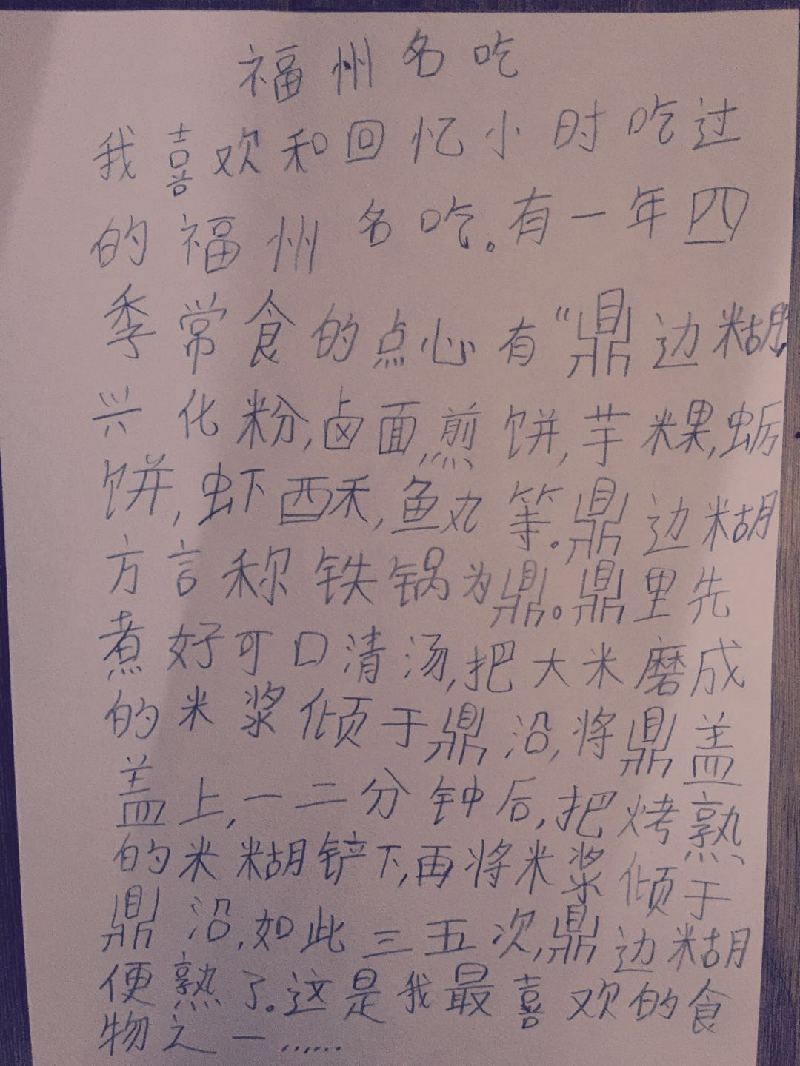 福州名吃
我喜欢和回忆小时吃过
的福州名吃。有一年四
季常食的点心有“鼎边糊,
兴化粉,卤面,煎饼,芋粿,蛎
饼,虾酥,鱼丸等。鼎边糊
方言称铁锅为鼎。鼎里先
煮好可口清汤,把大米磨成
的米浆倾于鼎沿,将鼎盖
盖上,一二分钟后,把烤熟
的米糊铲下,再将米浆倾于
鼎沿,如此三五次,鼎边糊
便熟了。这是我最喜欢的食
物之一……